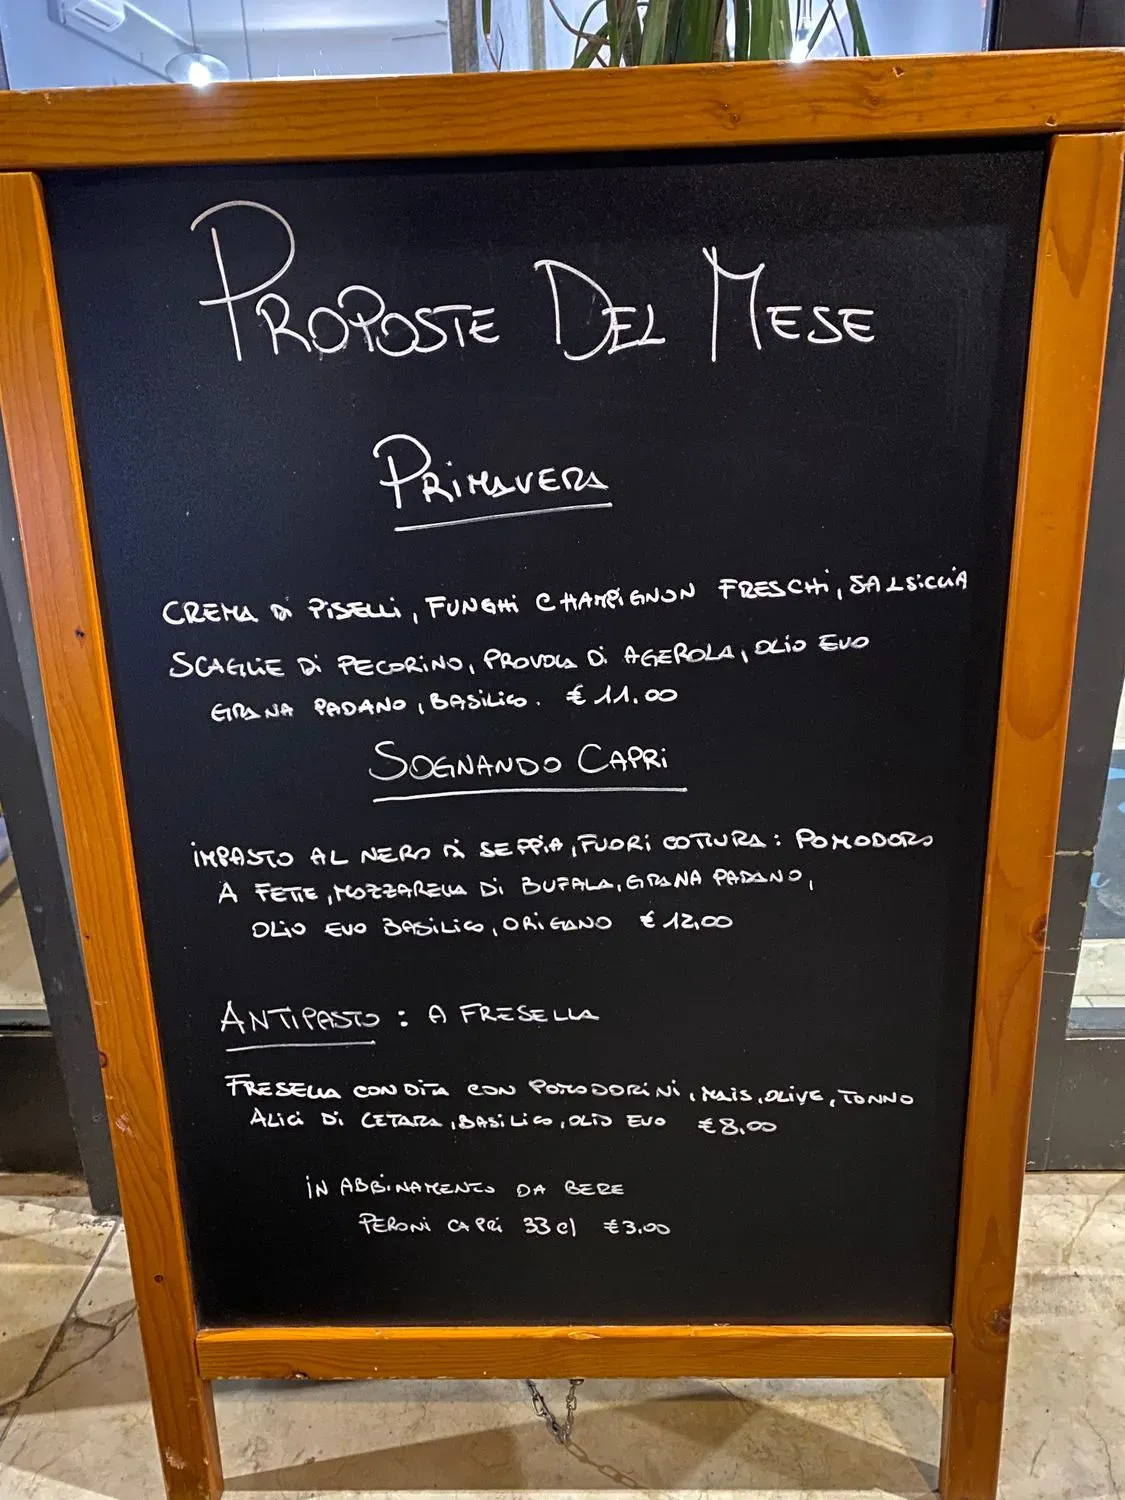 PROPOSTE DEL MESE
PRIMAVERA
CREMA DI PISELLI, FUNGHI CHAMPIGNON FRESCHI, SALSICCIA
SCAGLIE DI PECORINO, PROVOLA DI AGEROLA, OLIO EVO
GRANA PADANO, BASILICO. € 11.00
SOGNANDO CAPRI
IMPASTO AL NERO DI SEPPIA, FUORI COTTURA: POMODORO
A FETTE, MOZZARELLA DI BUFALA, GRANA PADANO,
OLIO EVO BASILICO, ORIGANO € 12,00
ANTIPASTO: A FRESELLA
FRESELLA CONDITA CON POMODORINI, MAIS, OLIVE, TONNO
ALICI DI CETARA, BASILICO, OLIO EVO € 8,00
IN ABBINAMENTO DA BERE
PERONI CAPRI 33 cl € 3.00